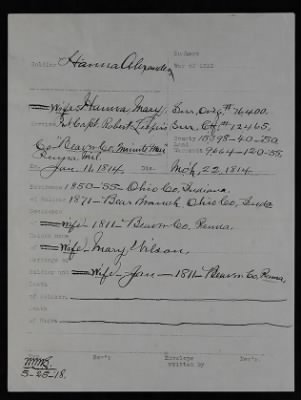 Soldier Hanna Alexander
War of 1812
Wife, Hanna Mary, Sur. Orig. # 16400.
Service Pvt Capt. Robert Sur. Ctf # 12465.
Bounty 18398-40-50
Land
Warrants 9664-120-55
Co "Beaver Co. Minute Men"
Penna. Mil.
Jan. 16. 1814 Mch. 22, 1814
Residence 1850-'55- Ohio Co, Indiana.
of Soldier 1871- Bear Branch Ohio Co, Inda
Residence
of Widow 1811- Beaver Co, Penna.
Maiden name
of Wife- Mary Wilson.
Marriage of
Soldier and Wife- Jan- 1811- Beaver Co, Penna.
Death
of Soldier
Death
of Widow
Rec'r Envelope Rev'r.
written by
5-25-18.